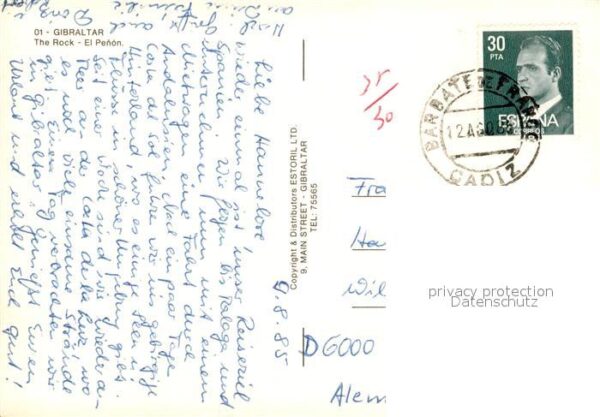 01 - GIBRALTAR
The Rock - El Peñón.
Liebe Hannelore
wieder einmal ist unser Reiseziel
Spanien. Wir flogen bis Malaga und
unternehmen nun mit einem
Mietwagen eine Fahrt durch
Andalusien. Nach ein paar Tage
Costa del Sol fuhren wir ins gebirgige
Hinterland, wo es einige Seen u.
Flüsse in schöner Umgebung gibt.
Seit einer Woche sind wir wieder am
Meer an der Costa de la Luz wo
es noch viele einsame Strände
gibt. Einen Tag verbrachten wir
in Gibraltar. Genießt Euren
Urlaub und
gut!
Copyright & Distributors ESTORIL LTD.
9, MAIN STREET - GIBRALTAR
TEL: 75565
9.8.85
35/30
30
PTA
ESPAÑA
CORREOS
BARBATE DE FRANCO
12 AGO 85
CADIZ
Fra
Ha
Wil
D6000
Alem
privacy protection
Datenschutz